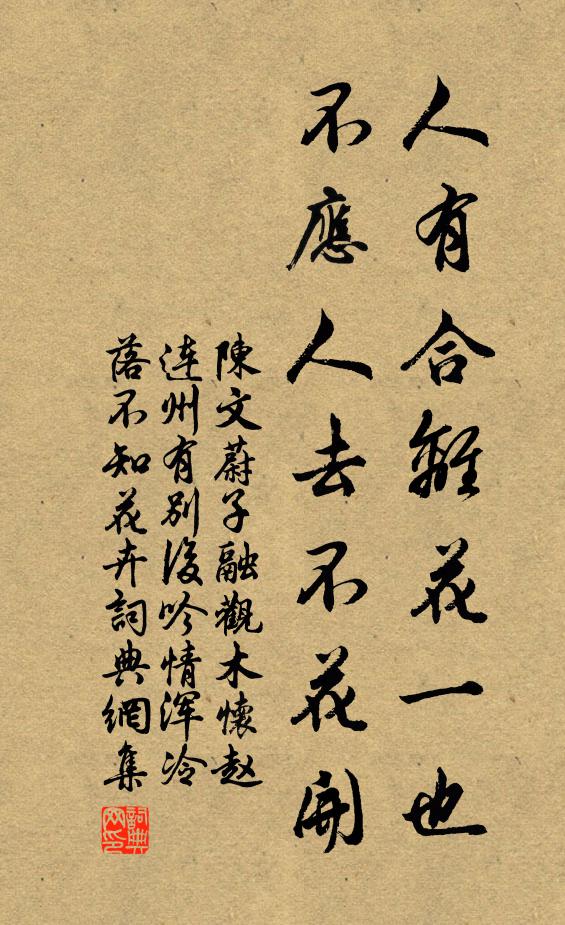 人有合離花一也
不應人去不花開
陳文蔚子融觀木懷赵
连州有别後吟情浑冷
落不知花卉詞典網集
詞典网印